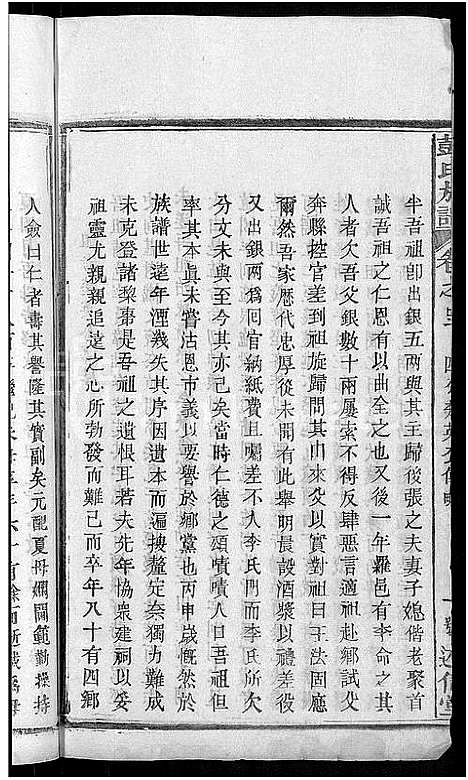 彭氏族譜
卷之
半吾祖卽出銀五兩與其主歸後張之夫妻子媳偕老聚首
誠吾祖之仁恩有以曲全之也一年羅邑有李命之其
人者欠吾父銀數十兩屢索不得反肆惡言適祖赴鄉試父
奔縣控官差到祖旋歸問其來父以實對祖曰王法固應
爾然吾家歷代忠厚從未開有此舉明晨設酒漿以禮差役
又出銀兩爲回官納紙費囑差不入李氏門而李氏所欠
分文未與至今其亦已矣當時仁德之頌嘖嘖人口吾祖但
率其本眞未嘗沽恩市義以要譽於鄉黨也丙申歲慨然於
族譜世遠年湮幾失其序因遺本而遍搜釐定奈獨力難成
未克登諸梨棗是吾祖之遺恨耳若夫先年協衆建祠以妥
祖靈尤親親追遠之心所勃發而難已而卒年八十有四鄉
人僉曰仁者壽其譽隆其實副矣元配夏母嫻閫範勤操持